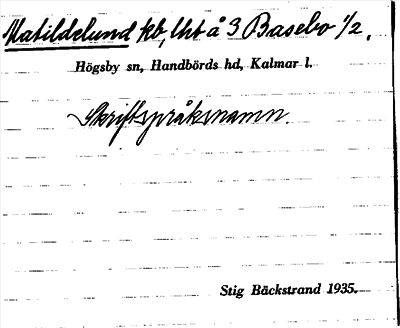 Matildelund kb, lht å 3 Basebo 1/2.
Högsby sn, Handbörds hd, Kalmar l.
Skriftspråksnamn.
Stig Bäckstrand 1935.